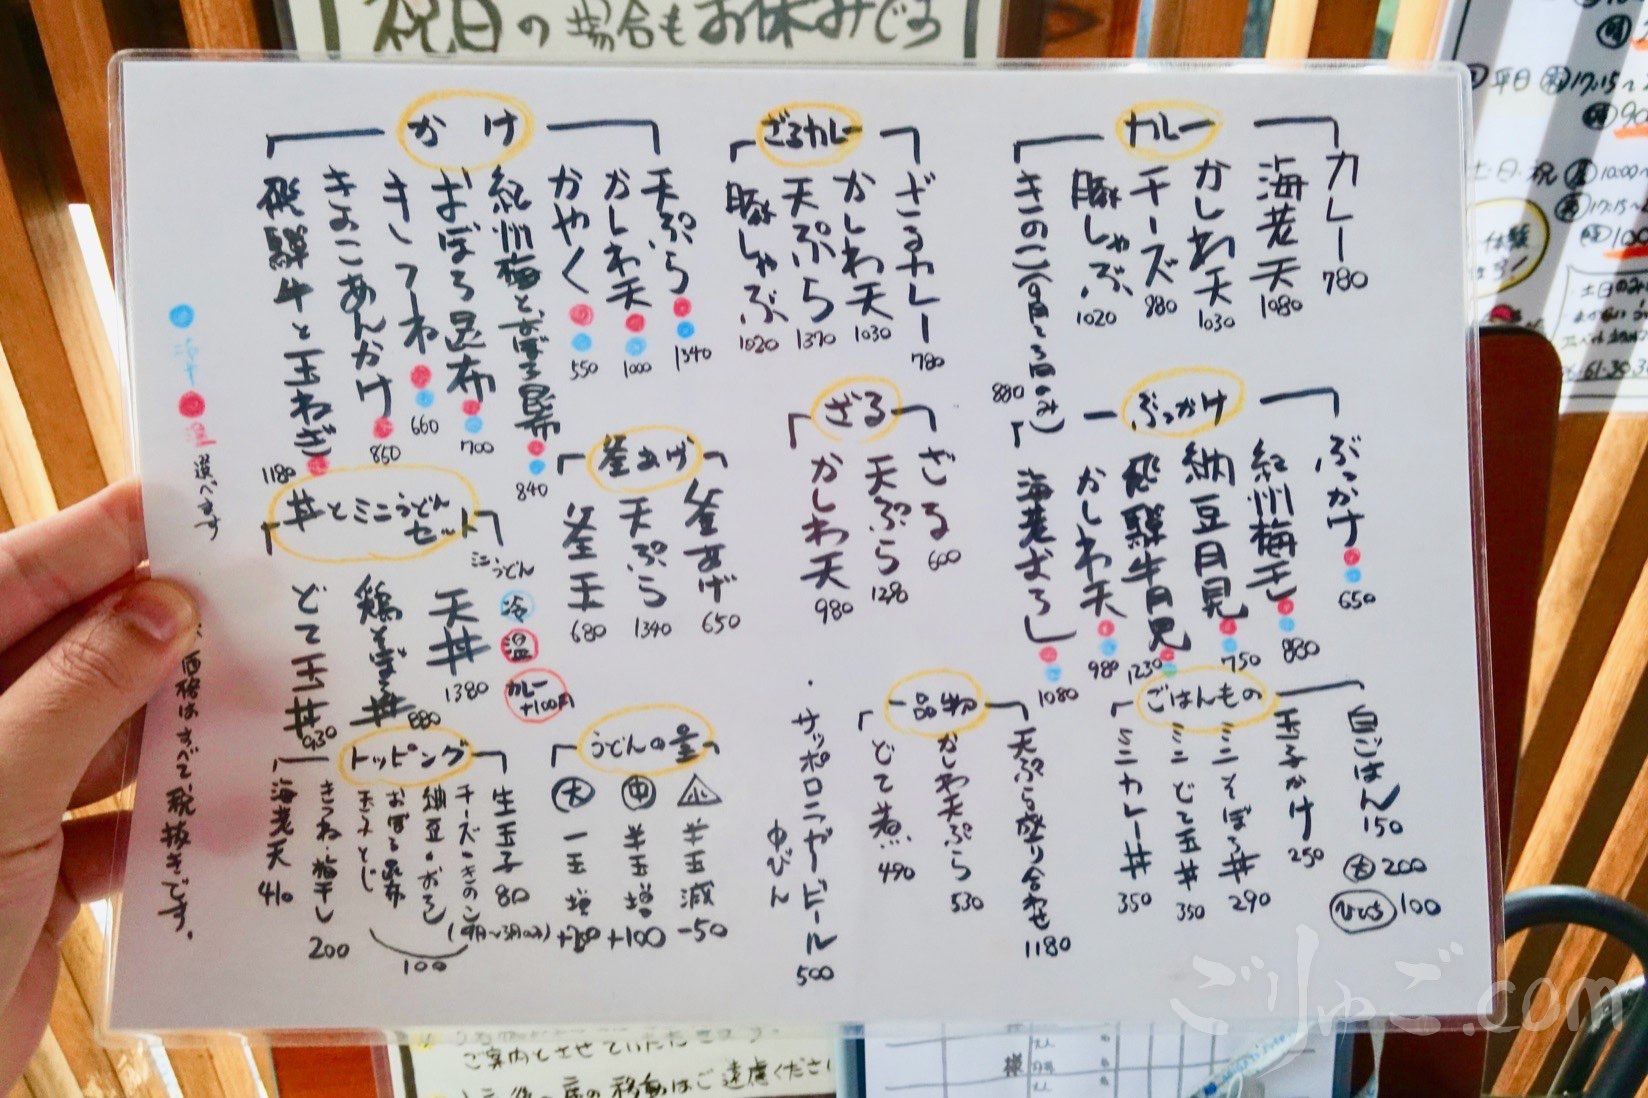 祝日の場合もお休みです
カレー
カレー 780
海老天 1080
かしわ天 1030
チーズ 880
豚しゃぶ 1020
きのこ(9月〜3月のみ) 880
ざるカレー
ざるカレー 780
かしわ天 1030
天ぷら 1370
豚しゃぶ 1020
かけ
天ぷら 1340
かしわ天 1000
かやく 550
紀州梅とおぼろ昆布 840
おぼろ昆布 700
きつね 660
きのこあんかけ 860
飛騨牛と玉ねぎ 1180
ぶっかけ
ぶっかけ 650
紀州梅干 880
納豆月見 750
飛騨牛月見 1230
かしわ天 980
海老おろし 1080
ざる
ざる 600
天ぷら 1290
かしわ天 980
釜あげ
釜あげ 650
天ぷら 1340
釜玉 680
丼とミニうどんセット
ミニうどん
冷
温
カレー+100円
天丼 1380
鶏そぼろ丼 880
どて玉丼 930
ごはんもの
白ごはん 150
大 200
ひとくち 100
玉子かけ 250
ミニそぼろ丼 290
ミニどて玉丼 350
ミニカレー丼 350
一品物
天ぷら盛り合わせ 1180
かしわ天ぷら 530
どて煮 490
・サッポロラガービール 中びん 500
うどんの量
小 半玉減 -50
中 半玉増 +100
大 一玉増 +200
トッピング
生玉子 80
チーズ・きのこ(9月〜3月のみ)
納豆・おろし
おぼろ昆布
玉子とじ
100
きつね・梅干し 200
海老天 410
冷 温 選べます
価格はすべて、税抜きです。
平日
17:15〜
土・日・祝
10:00〜
17:15〜
体験
土日のみ
61-3030
ご案内とさせていただきます。
席の移動はご遠慮ください
様
ごりゅご.com